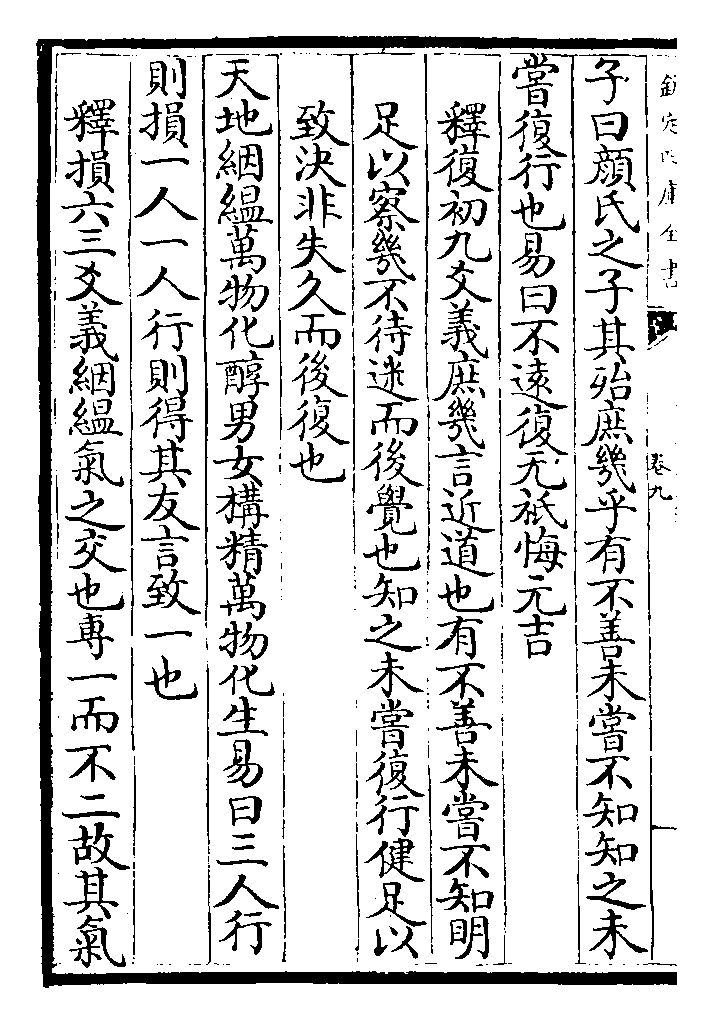 欽定四庫全書
卷九
子曰顔氏之子其殆庶幾乎有不善未嘗不知知之未
嘗復行也易曰不遠復无祗悔元吉
釋復初九爻義庶幾言近道也有不善未嘗不知明
足以察幾不待迷而後覺也知之未嘗復行健足以
致決非失久而後復也
天地絪緼萬物化醇男女構精萬物化生易曰三人行
則損一人一人行則得其友言致一也
釋損六三爻義絪緼氣之交也專一而不二故其氣